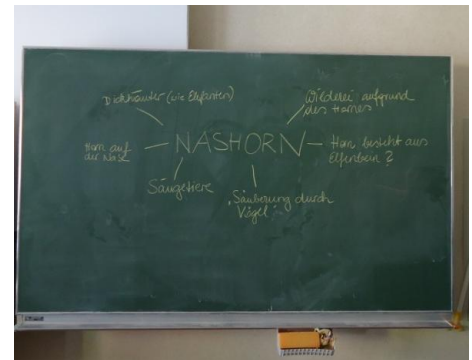 Dickhäuter (wie Elefanten)
Wilderei aufgrund
des Hornes
Horn auf
der Nase
NASHORN
Horn besteht aus
Elfenbein ?
Säugetiere
Säuberung durch
Vögel